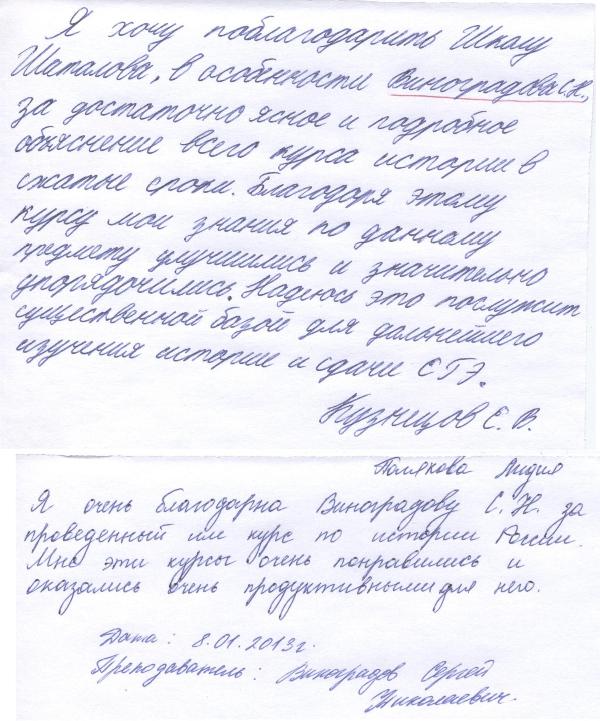 Я хочу поблагодарить Школу
Шаталова, в особенности Виноградова С.Н.,
за достаточно ясное и подробное
объяснение всего курса истории в
сжатые сроки. Благодоря этому
курсу мои знания по данному
предмету улучшились и значительно
упорядочились. Надеюсь это послужит
существенной базой для дальнейшего
изучения истории и сдачи ЕГЭ.
Кузнецов Е. В.
Полякова Лидия
Я очень благодарна Виноградову С. Н. за
проведенный им курс по истории России.
Мне эти курсы очень понравились и
оказались очень продуктивными для него.
Дата: 8.01.2013г.
Преподаватель: Виноградов Сергей
Николаевич.